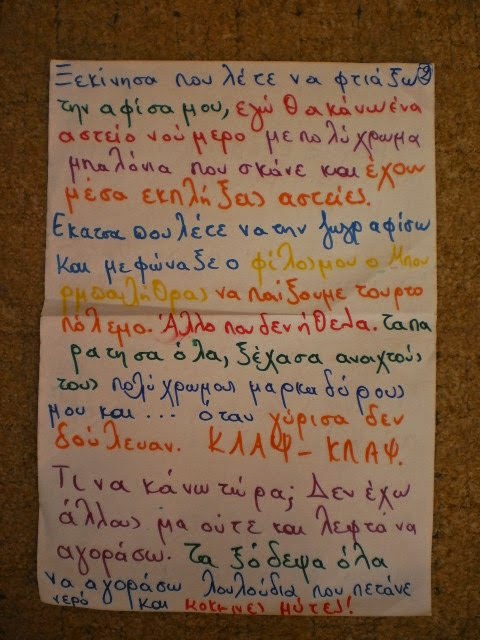 Ξεκίνησα που λέτε να φτιάξω 2
την αφίσα μου, εγώ θα κάνω ένα
αστείο νούμερο με πολύχρωμα
μπαλόνια που σκάνε και έχουν
μέσα εκπλήξεις αστείες.
Εκατσα που λέτε να την ζωγραφίσω
και με φώναξε ο φίλος μου ο Μπου
ρμπουλήθρας να παίξουμε τουρτο
πόλεμο. Άλλο που δεν ήθελα. τα πα
ρατησα όλα, ξέχασα ανοιχτούς
τους πολύχρωμους μαρκαδόρους
μου και... όταν γύρισα δεν
δούλευαν. ΚΛΑΨ - ΚΛΑΨ.
Τι να κάνω τώρα; Δεν έχω
άλλους μα ούτε και λεφτά να
αγοράσω. Τα ξόδεψα όλα
να αγοράσω λουλούδια που πετάνε
νερό και κοκκινες μύτες!